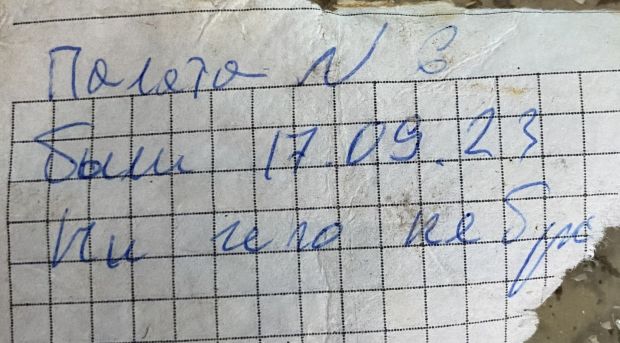 Палата N 6
были 17.09.23
Ни чего не бра